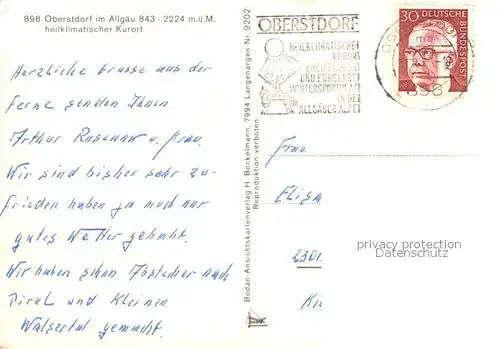 898 Oberstdorf im Allgäu 843 - 2224 m.ü.M.
heilklimatischer Kurort
Herzliche Grüsse aus der
Ferne senden Ihnen
Arthur u. Frau.
Wir sind bisher sehr zu-
frieden haben ja auch nur
gutes Wetter gehabt.
Wir haben schon Abstecher nach
Tirol und Kleinen
Walsertal gemacht.
Bodan Ansichtskartenverlag H. Bockelmann, 7994 Langenargen Nr. 9202
Reproduktion verboten
OBERSTDORF
HEILKLIMATISCHER
KURORT
KNEIPPKURORT
UND FÜHRENDER
WINTERSPORTPLATZ
IN DEN
ALLGÄUER ALPEN
30 DEUTSCHE
BUNDESPOST
Frau
2301
privacy protection
Datenschutz